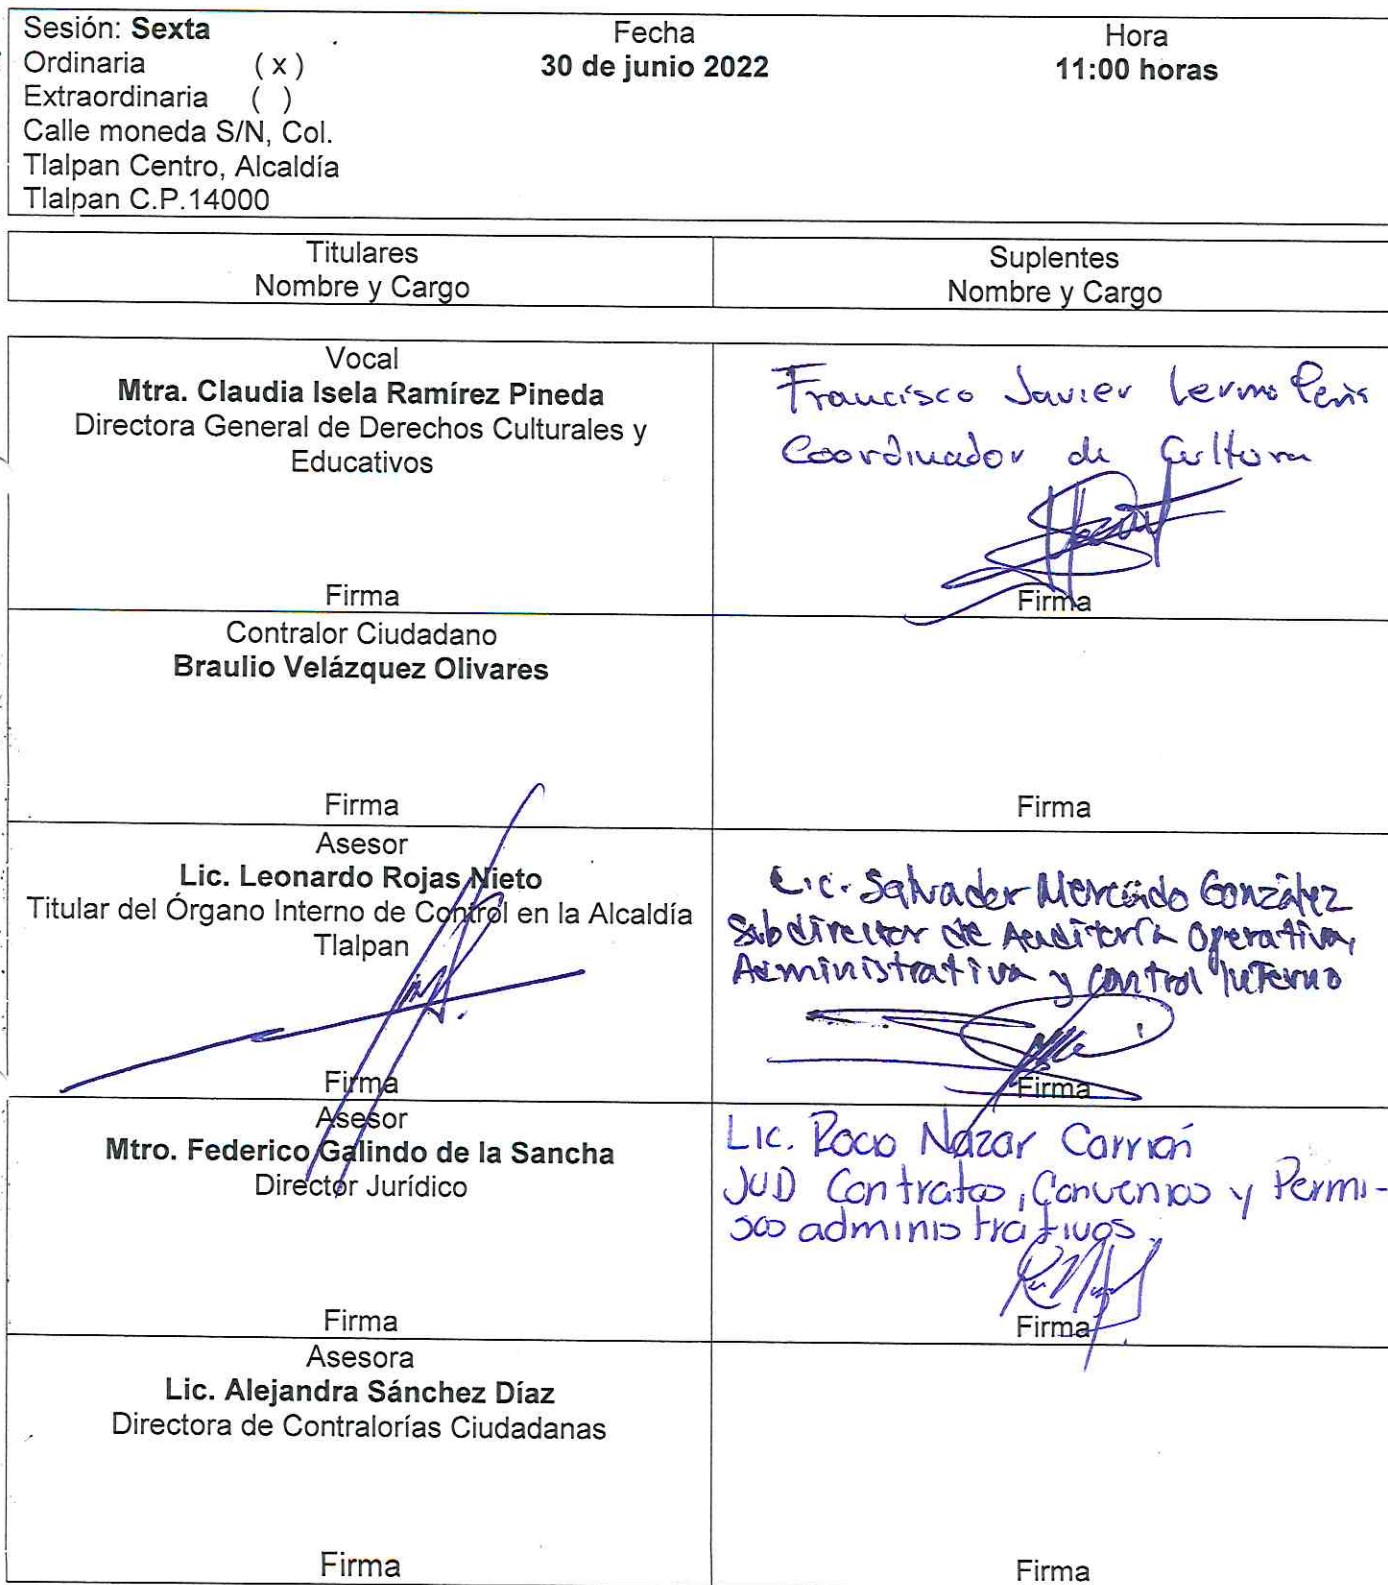 Sesión: Sexta
Ordinaria ( x )
Extraordinaria ( )
Calle moneda S/N, Col.
Tlalpan Centro, Alcaldía
Tlalpan C.P.14000
Fecha
30 de junio 2022
Hora
11:00 horas
Titulares
Nombre y Cargo
Suplentes
Nombre y Cargo
Vocal
Mtra. Claudia Isela Ramírez Pineda
Directora General de Derechos Culturales y
Educativos
Firma
Francisco Javier
Coordinador de Cultura
Firma
Contralor Ciudadano
Braulio Velázquez Olivares
Firma
Firma
Asesor
Lic. Leonardo Rojas Nieto
Titular del Órgano Interno de Control en la Alcaldía
Tlalpan
Firma
Lic. Salvador Mercado González
Subdirector de Auditoría Operativa,
Administrativa y Control Interno
Firma
Asesor
Mtro. Federico Galindo de la Sancha
Director Jurídico
Firma
Lic. Rocio Nazar Carrión
JUD Contratos, Convenios y Permi-
sos administrativos.
Firma
Asesora
Lic. Alejandra Sánchez Díaz
Directora de Contralorías Ciudadanas
Firma
Firma